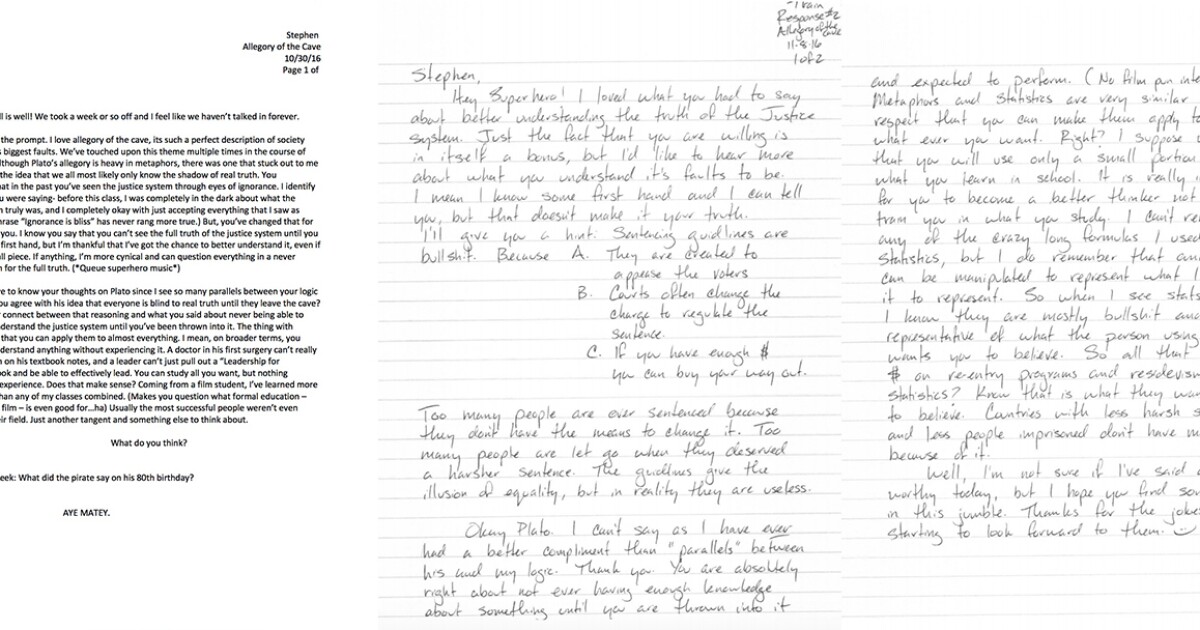 Stephen
Allegory of the Cave
10/30/16
Page 1 of
ll is well! We took a week or so off and I feel like we haven't talked in forever.
the prompt. I love allegory of the cave, its such a perfect description of society
s biggest faults. We've touched upon this theme multiple times in the course of
lthough Plato's allegory is heavy in metaphors, there was one that stuck out to me
the idea that we all most likely only know the shadow of real truth. You
hat in the past you've seen the justice system through eyes of ignorance. I identify
u were saying- before this class, I was completely in the dark about what the
n truly was, and I completely okay with just accepting everything that I saw as
hrase "Ignorance is bliss" has never rang more true.) But, you've changed that for
you. I know you say that you can't see the full truth of the justice system until you
first hand, but I'm thankful that I've got the chance to better understand it, even if
ll piece. If anything, I'm more cynical and can question everything in a never
n for the full truth. (*Queue superhero music*)
ve to know your thoughts on Plato since I see so many parallels between your logic
ou agree with his idea that everyone is blind to real truth until they leave the cave?
r connect between that reasoning and what you said about never being able to
nderstand the justice system until you've been thrown into it. The thing with
that you can apply them to almost everything. I mean, on broader terms, you
derstand anything without experiencing it. A doctor in his first surgery can't really
n on his textbook notes, and a leader can't just pull out a "Leadership for
ook and be able to effectively lead. You can study all you want, but nothing
experience. Does that make sense? Coming from a film student, I've learned more
han any of my classes combined. (Makes you question what formal education –
film – is even good for...ha) Usually the most successful people weren't even
eir field. Just another tangent and something else to think about.
What do you think?
eek: What did the pirate say on his 80th birthday?
AYE MATEY.
Train
Response #2
Allegory of the Cave
11-8-16
1 of 2
Stephen,
Hey Superhero! I loved what you had to say
about better understanding the truth of the Justice
system. Just the fact that you are willing is
in itself a bonus, but I'd like to hear more
about what you understand it's faults to be.
I mean I know some first hand and I can tell
you, but that doesn't make it your truth.
I'll give you a hint. Sentencing guidlines are
bullshit. Because A. They are created to
appease the voters
B. Courts often change the
charge to regulate the
sentence.
C. If you have enough $
you can buy your way out.
Too many people are over sentenced because
they don't have the means to change it. Too
many people are let go when they deserved
a harsher sentence. The guidlines give the
illusion of equality, but in reality they are useless.
Okay Plato. I can't say as I have ever
had a better compliment than "parallels" between
his and my logic. Thank you. You are absolutely
right about not ever having enough knowledge
about something until you are thrown into it
and expected to perform. (No film pun inte
Metaphors and Statistics are very similar
respect that you can make them apply to
what ever you want. Right? I suppose
that you will use only a small portion
what you learn in school. It is really i
for you to become a better thinker not
from you in what you study. I can't re
any of the crazy long formulas I used
Statistics, but I do remember that an
can be manipulated to represent what I
it to represent. So when I see stats
I know they are mostly bullshit and
representative of what the person using
wants you to believe. So all that
$ on re-entry programs and residevism
statistics? Know that is what they wa
to believe. Cuntries with less harsh s
and less people imprisoned don't have m
because of it.
Well, I'm not sure if I've said a
worthy today, but I hope you find so
in this jumble. Thanks for the joke
starting to look forward to them.